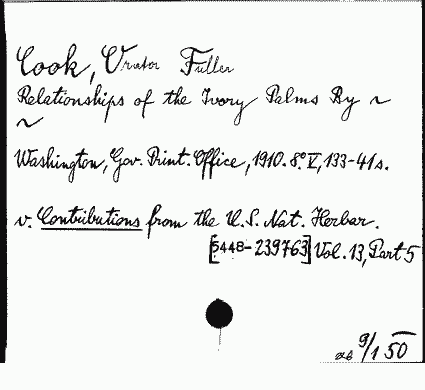 Cook, Orator Fuller
Relationships of the Ivory Palms By ~
~
Washington, Gov. Print. Office, 1910. 8°. V, 133-41 s.
v. Contributions from the U.S. Nat. Herbar.
[5448-239763] Vol. 13, Part 5
9/1 50